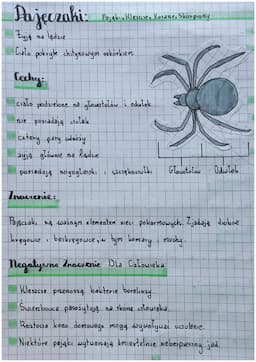 Pajęczaki: Pająki, Kleszcze, Kosarze, Skorpiony
Żyją na lądzie
Ciało pokryte chitynowym oskórkiem
Cechy:
ciało podzielone na głowotułów i odwłok
nie posiadają czułek
cztery pary odnóży
żyją głównie na lądzie
posiadają nogogłaszki i szczękoczułki
Głowotułów Odwłok
Znaczenie:
Pajęczaki są ważnym elementem sieci pokarmowych. Zjadają drobne
kręgowce i bezkręgowce, w tym komary i muchy.
Negatywne Znaczenie Dla Człowieka
Kleszcze przenoszą bakterie boreliozy.
Świerzbowce pasożytują na skórze człowieka.
Roztocza kurzu domowego mogą wywoływać uczulenie.
Niektóre pająki wytwarzają śmiertelnie niebezpieczny jad.